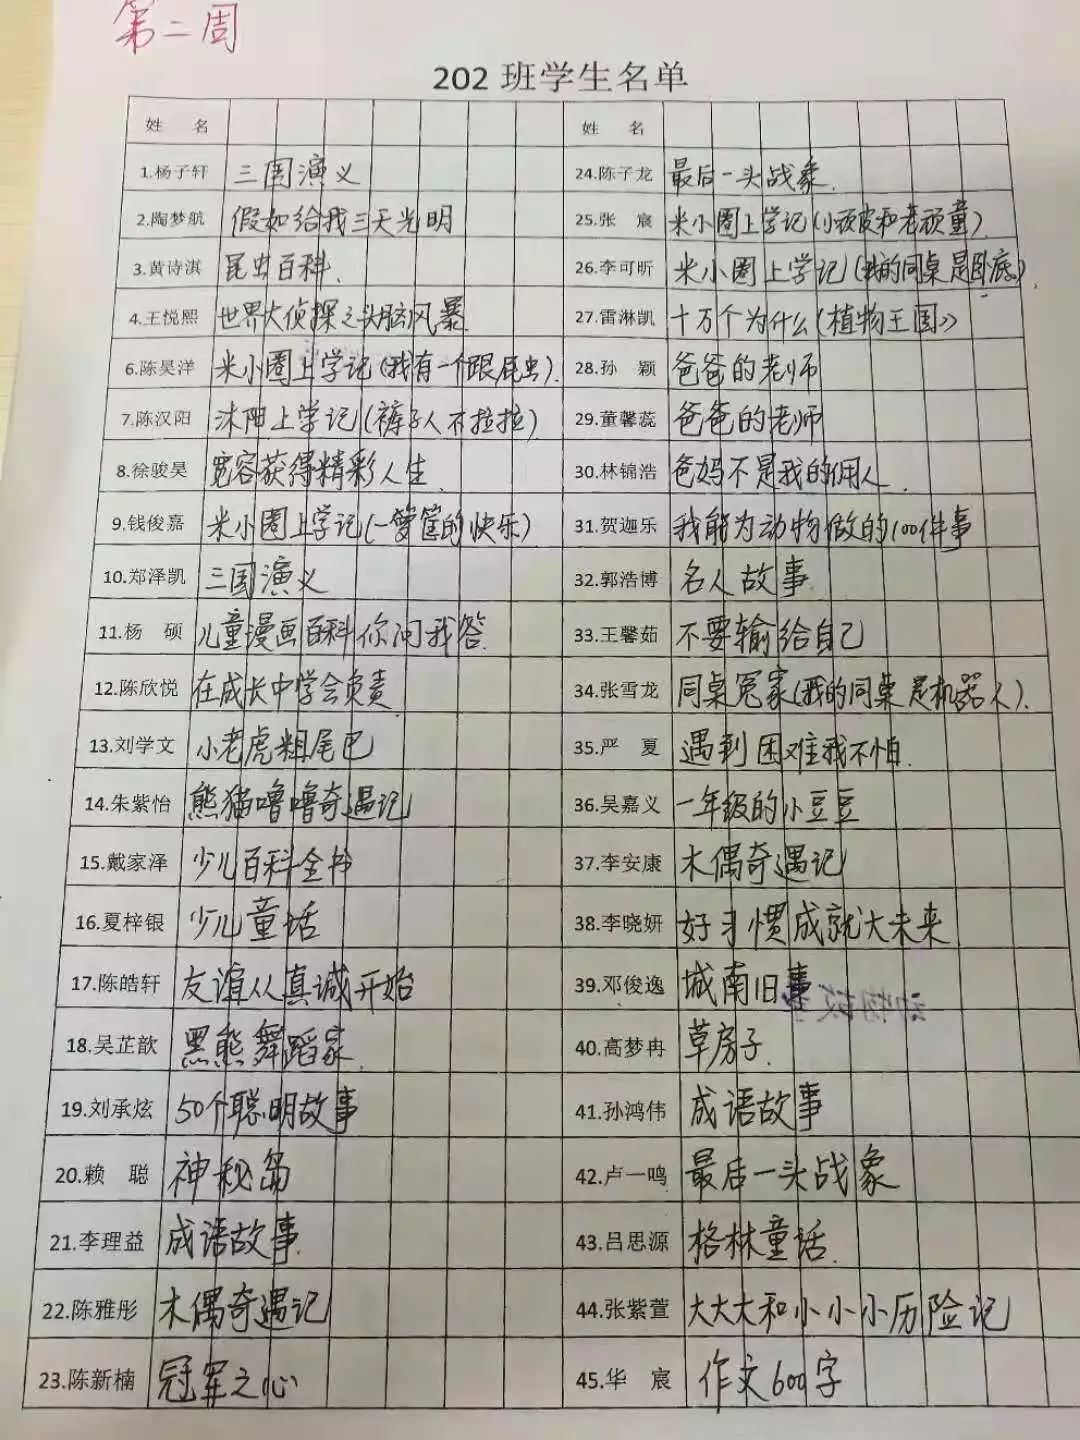 第二周
202 班学生名单
姓 名 姓 名
1.杨子轩 三国演义 24.陈子龙 最后一头战象.
2.陶梦航 假如给我三天光明 25.张 宸 米小圈上学记(小顽皮和老顽童)
3.黄诗淇 昆虫百科. 26.李可昕 米小圈上学记(我的同桌是卧底)
4.王悦熙 世界大侦探之头脑风暴 27.雷淋凯 十万个为什么(植物王国》
6.陈昊洋 米小圈上学记(我有一个跟屁虫). 28.孙 颖 爸爸的老师
7.陈汉阳 沐阳上学记(裤子人不拉拉) 29.董馨蕊 爸爸的老师
8.徐骏昊 宽容获得精彩人生. 30.林锦浩 爸妈不是我的佣人.
9.钱俊嘉 米小圈上学记(一箩筐的快乐) 31.贺迦乐 我能为动物做的100件事
10.郑泽凯 三国演义 32.郭浩博 名人故事.
11.杨 硕 儿童漫画百科你问我答. 33.王馨茹 不要输给自己
12.陈欣悦 在成长中学会负责 34.张雪龙 同桌冤家(我的同桌是机器人).
13.刘学文 小老虎粗尾巴 35.严 夏 遇到困难我不怕.
14.朱紫怡 熊猫噜噜奇遇记 36.吴嘉义 一年级的小豆豆
15.戴家泽 少儿百科全书 37.李安康 木偶奇遇记
16.夏梓银 少儿童话 38.李晓妍 好习惯成就大未来
17.陈皓轩 友谊从真诚开始 39.邓俊逸 城南旧事
18.吴芷歆 黑熊舞蹈家. 40.高梦冉 草房子.
19.刘承炫 50个聪明故事 41.孙鸿伟 成语故事
20.赖 聪 神秘岛 42.卢一鸣 最后一头战象
21.李理益 成语故事. 43.吕思源 格林童话.
22.陈雅彤 木偶奇遇记 44.张紫萱 大大大和小小小历险记
23.陈新楠 冠军之心 45.华 宸 作文600字